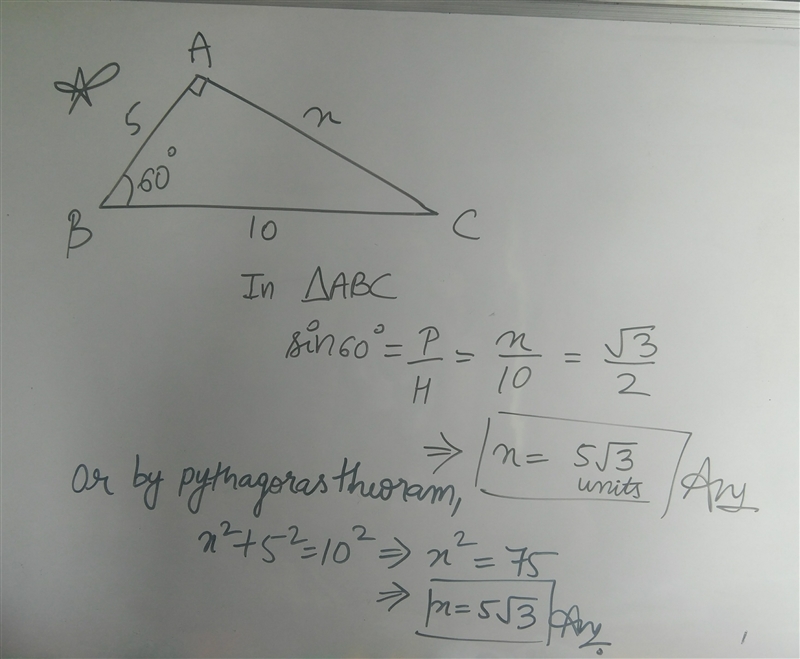 A
5
x
60°
B
10
C
In △ABC
sin60° = P/H = x/10 = √3/2
⇒ x = 5√3 units Ans
Or by pythagoras theoram,
x²+5²=10² ⇒ x² = 75
⇒ x = 5√3 Ans.